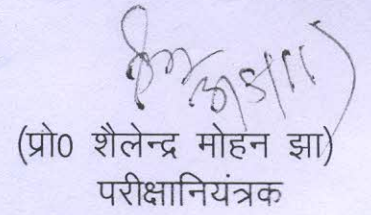 (प्रो0 शैलेन्द्र मोहन झा)
परीक्षानियंत्रक